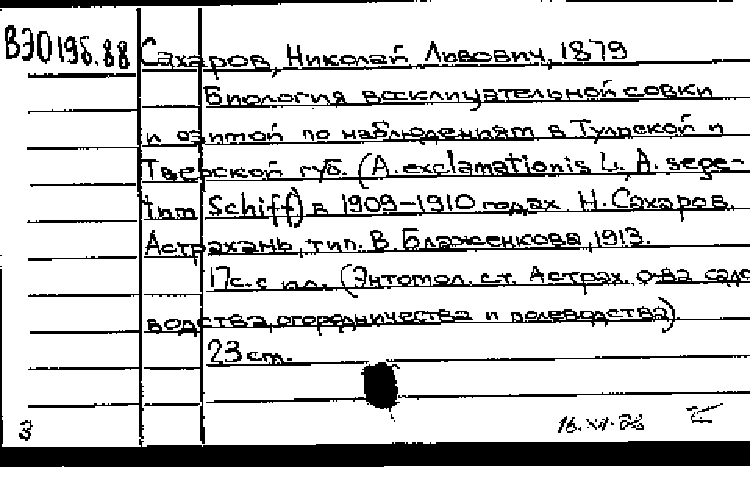 ВЭО 196.88 Сахаров, Николай Львович, 1879
Биология восклицательной совки
и озимой по наблюдениям в Тульской и
Тверской губ. (A. exclamationis L., A. sege-
tum Schiff) в 1909-1910 годах. Н. Сахаров.
Астрахань, тип. В. Блаженкова, 1913.
17с. с илл. (Энтомол. ст. Астрах. о-ва садо
водства, огородничества и полеводства)
23 см.
3